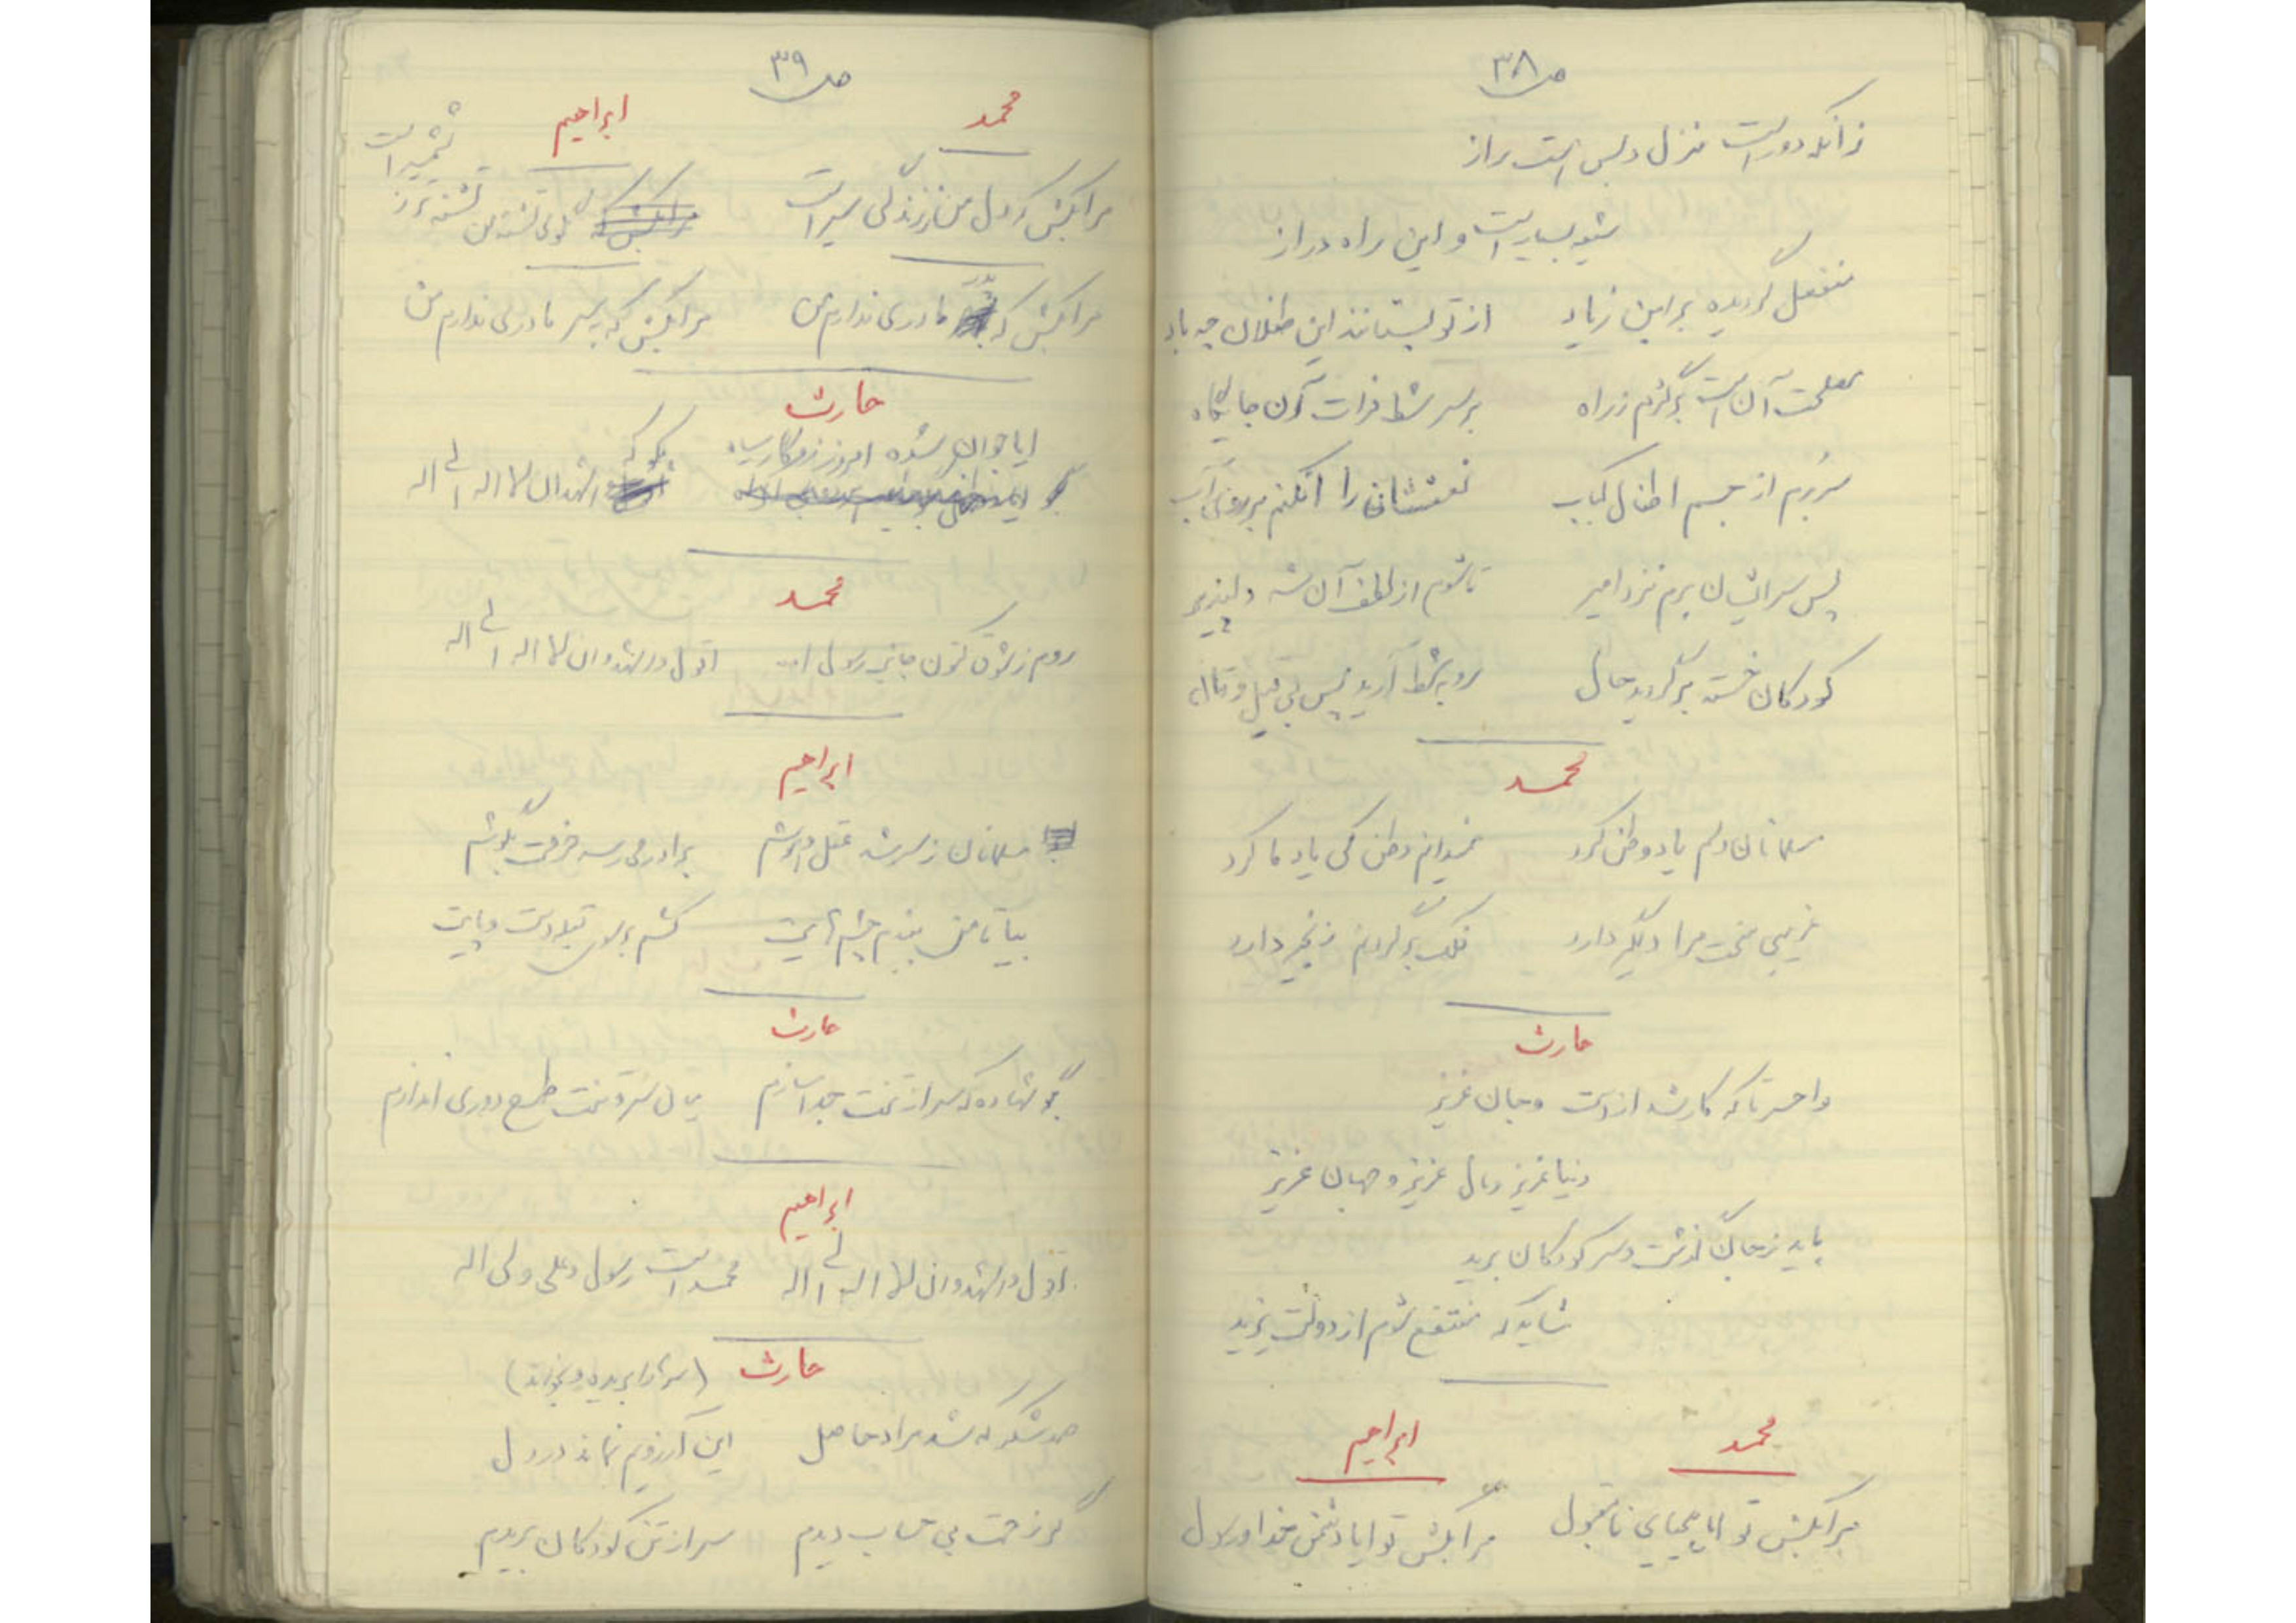 ص ۳۸
زانکه دور است منزل و بس است براز
شیر بسیار است و این راه دراز
منفعل گردیده بر ابن زیاد از تو بستانند این طفلان چه باد
مصلحت آن است برگردم ز راه بر سر شط فرات آرن جایگاه
سر برم از جسم اطفال کباب نعششان را افکنم بر روی آب
پس سر ایشان برم نزد امیر تا شوم از لطف آن شه دلپذیر
کودکان خسته برگردید حال رو به شط آرید پس بی قیل و قال
محمد
مسلمانان دلم یاد وطن کرد نمیدانم وطن کی یاد ما کرد
غریبی سخت مرا دلگیر دارد فلک بر گردنم زنجیر دارد
حارث
واحسرتا که کار شد از دست و جان عزیز
دنیا عزیز و مال عزیز و جهان عزیز
باید ز جان گذشت و سر کودکان برید
شاید که منتفع شوم از دولت یزید
محمد ابراهیم
مرا بکش تو ایا بیحیای نامقبول مرا بکش تو ایا دشمن خدا و رسول
ص ۳۹
محمد ابراهیم
مرا بکش که دل من ز زندگی سیر است گلوی تشنه من تشنه تر ز شمشیر است
مرا بکش که مادری ندارم من مرا بکش که پسر مادری ندارم من
حارث
ایا جوان شده امروز روزگار سیاه
بگو که اشهد ان لا اله الی اله
محمد
روم ز شوق کنون جانب رسول اقول و اشهد و ان لا اله الی اله
ابراهیم
مسلمانان ز سر شد عقل و هوشم برادر می رسد حرفت بگوشم
بیا تا من ببندم چشمهایت کشم بر سوی قبله دست و پایت
حارث
بگو شهاده که سر از تنت جدا سازم میان سر و تنت طرح دوری اندازم
ابراهیم
اقول و اشهد و ان لا اله الی اله محمد است رسول و علی ولی اله
حارث (سر را بریده و بخواند)
صد شکر که شد مراد حاصل این آرزویم نماند در دل
گر زحمت بی حساب دیدم سر از تن کودکان بریدم